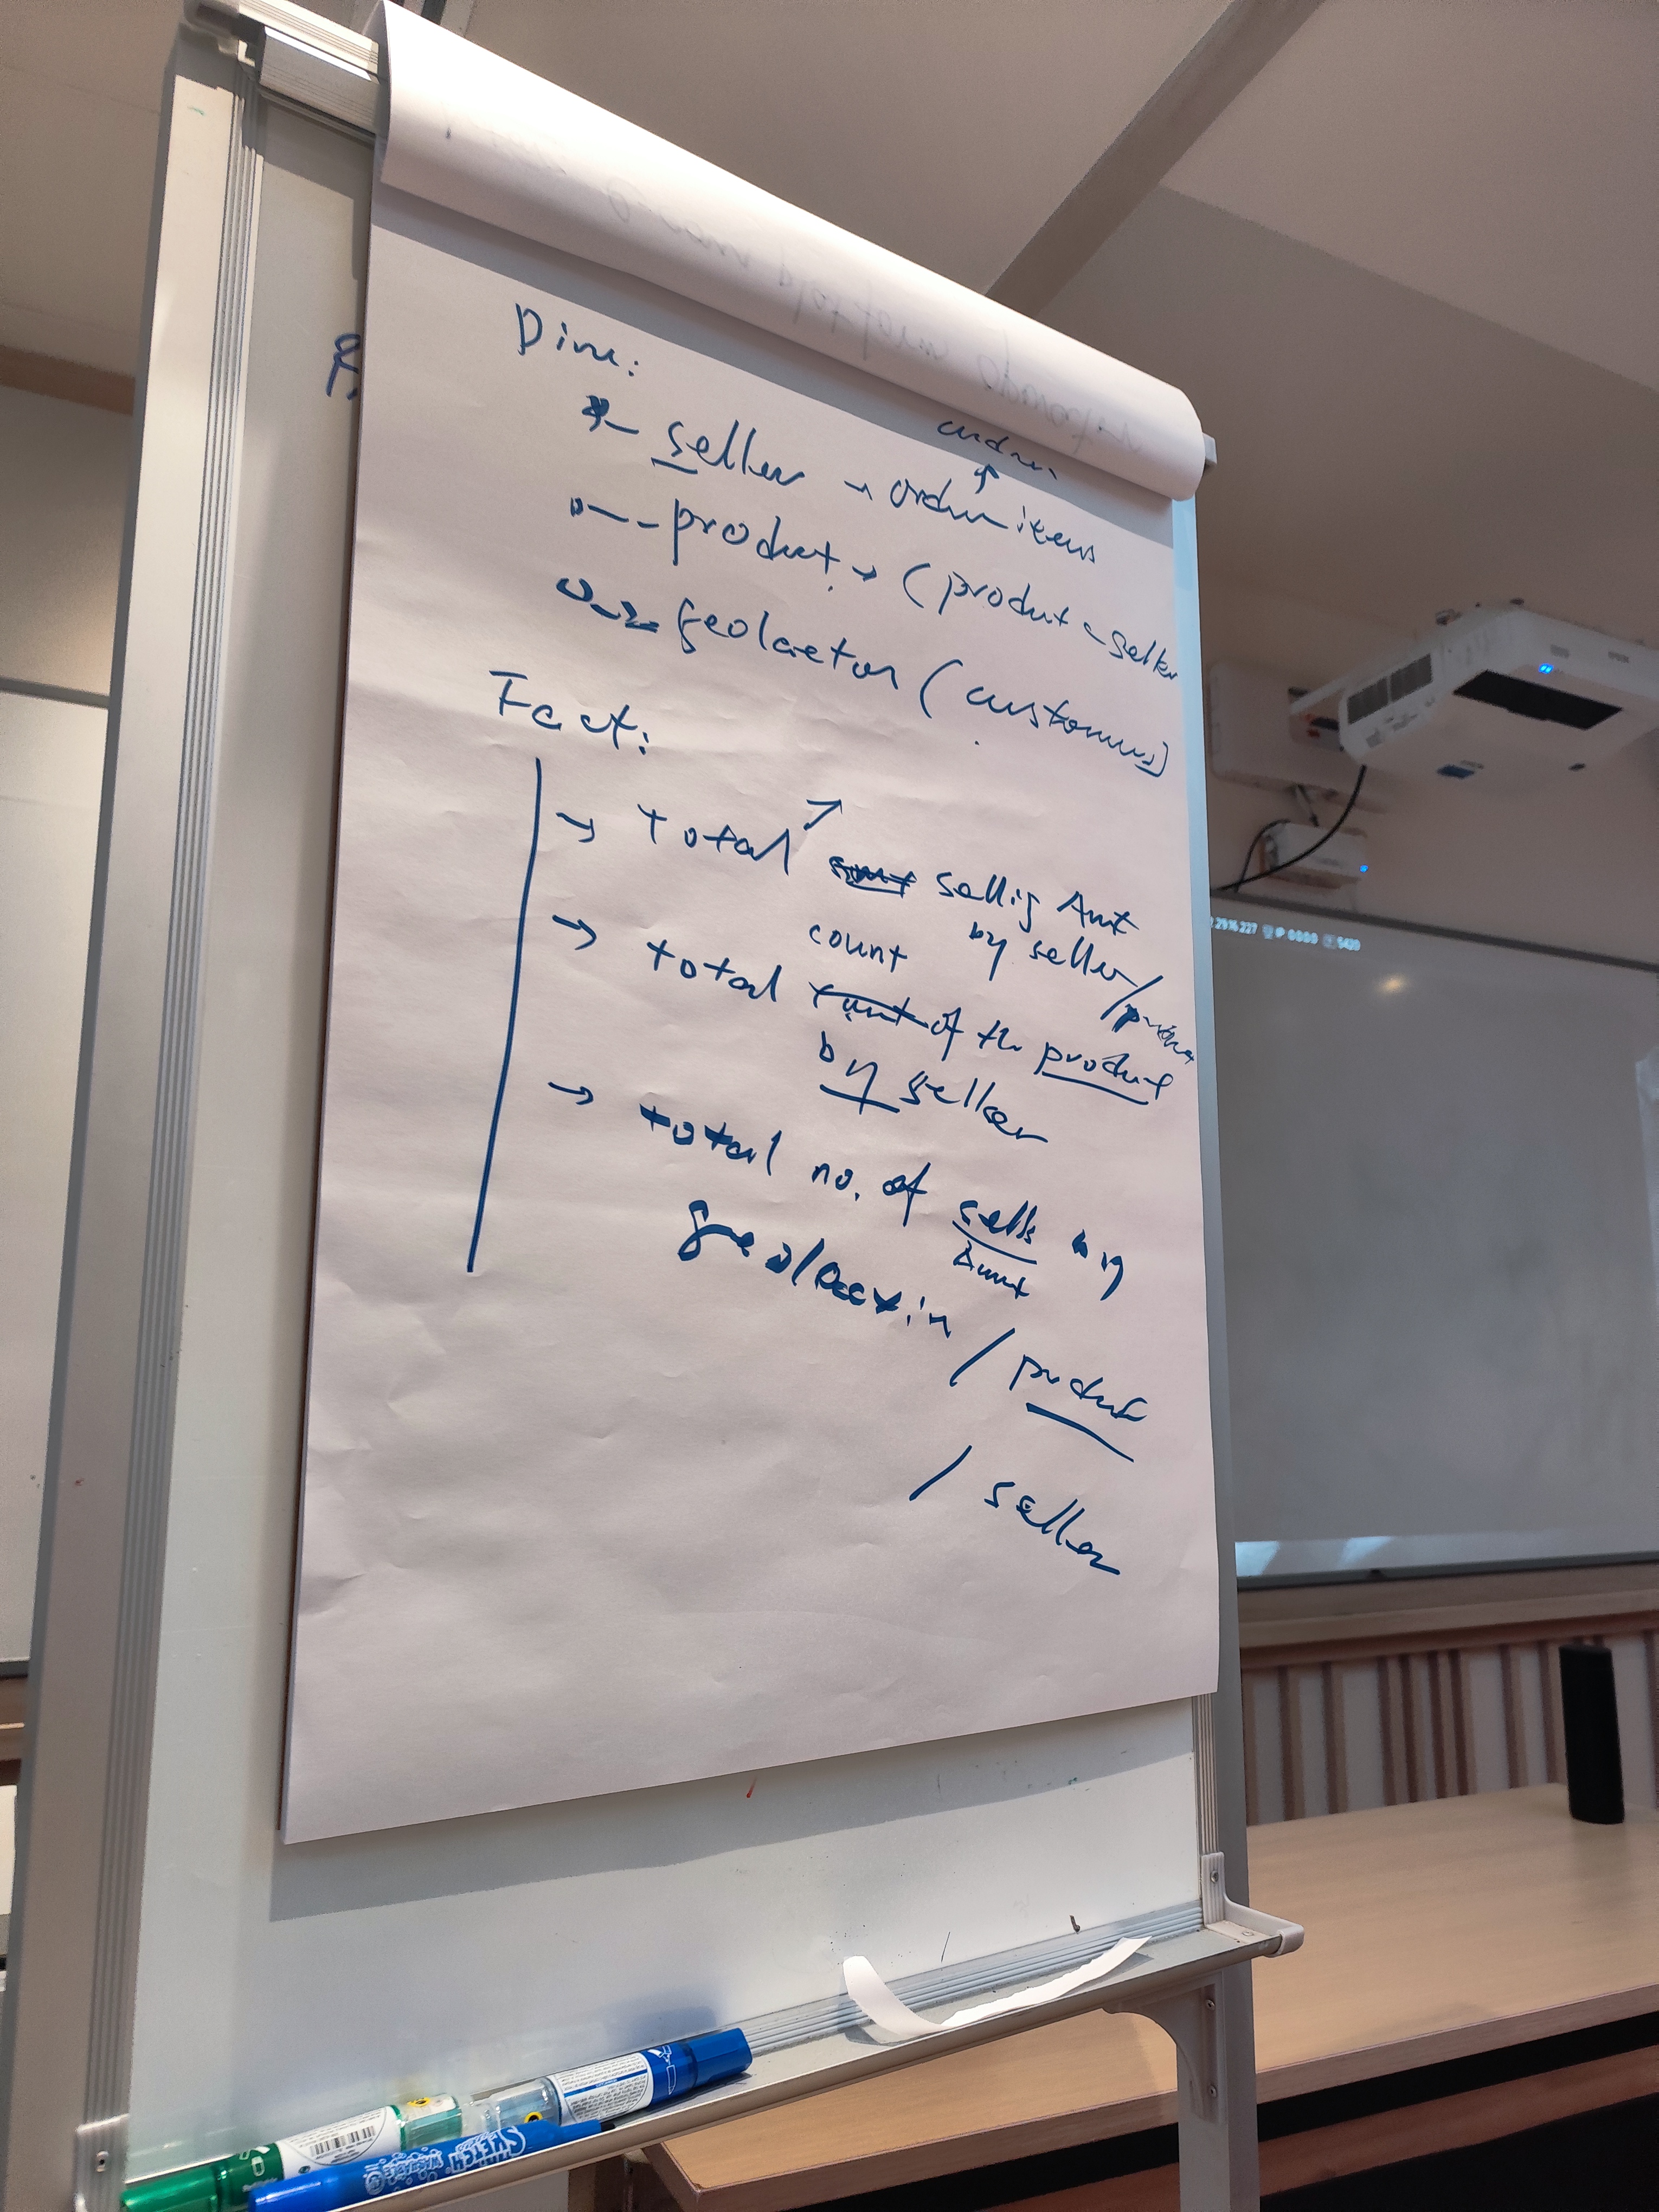 Dim:
seller → order items
product → (product - seller
geolocation (customers)
Fact:
→ total selling Amt
by seller/product
count
→ total of the product
by seller
→ total no. of sells by
Amt
geolocation / product
/ seller